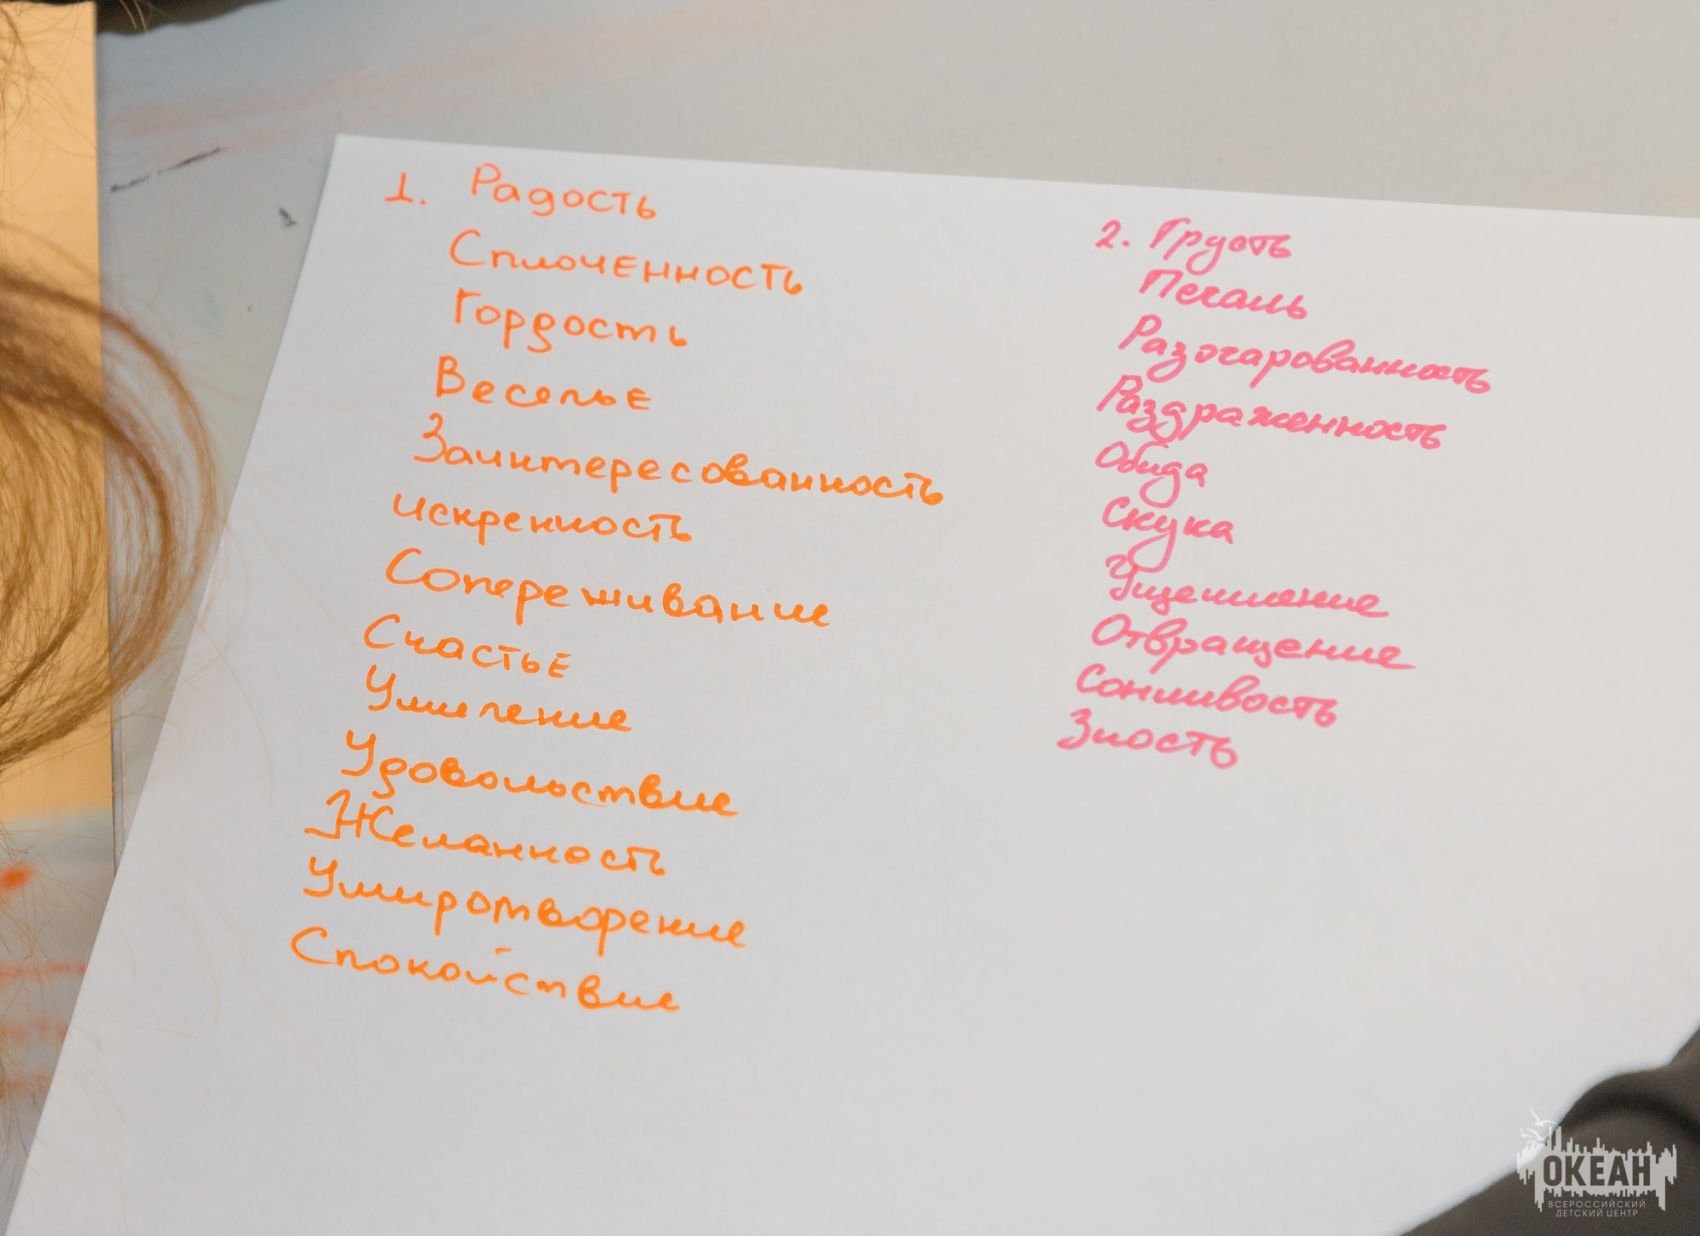 1. Радость
Сплоченность
Гордость
Веселье
Заинтересованность
искренность
Сопереживание
Счастье
Умиление
Удовольствие
Желанность
Умиротворение
Спокойствие
2. Грусть
Печаль
Разочарованность
Раздраженность
Обида
Скука
Ущемление
Отвращение
Сонливость
Злость
ОКЕАН
ВСЕРОССИЙСКИЙ
ДЕТСКИЙ ЦЕНТР